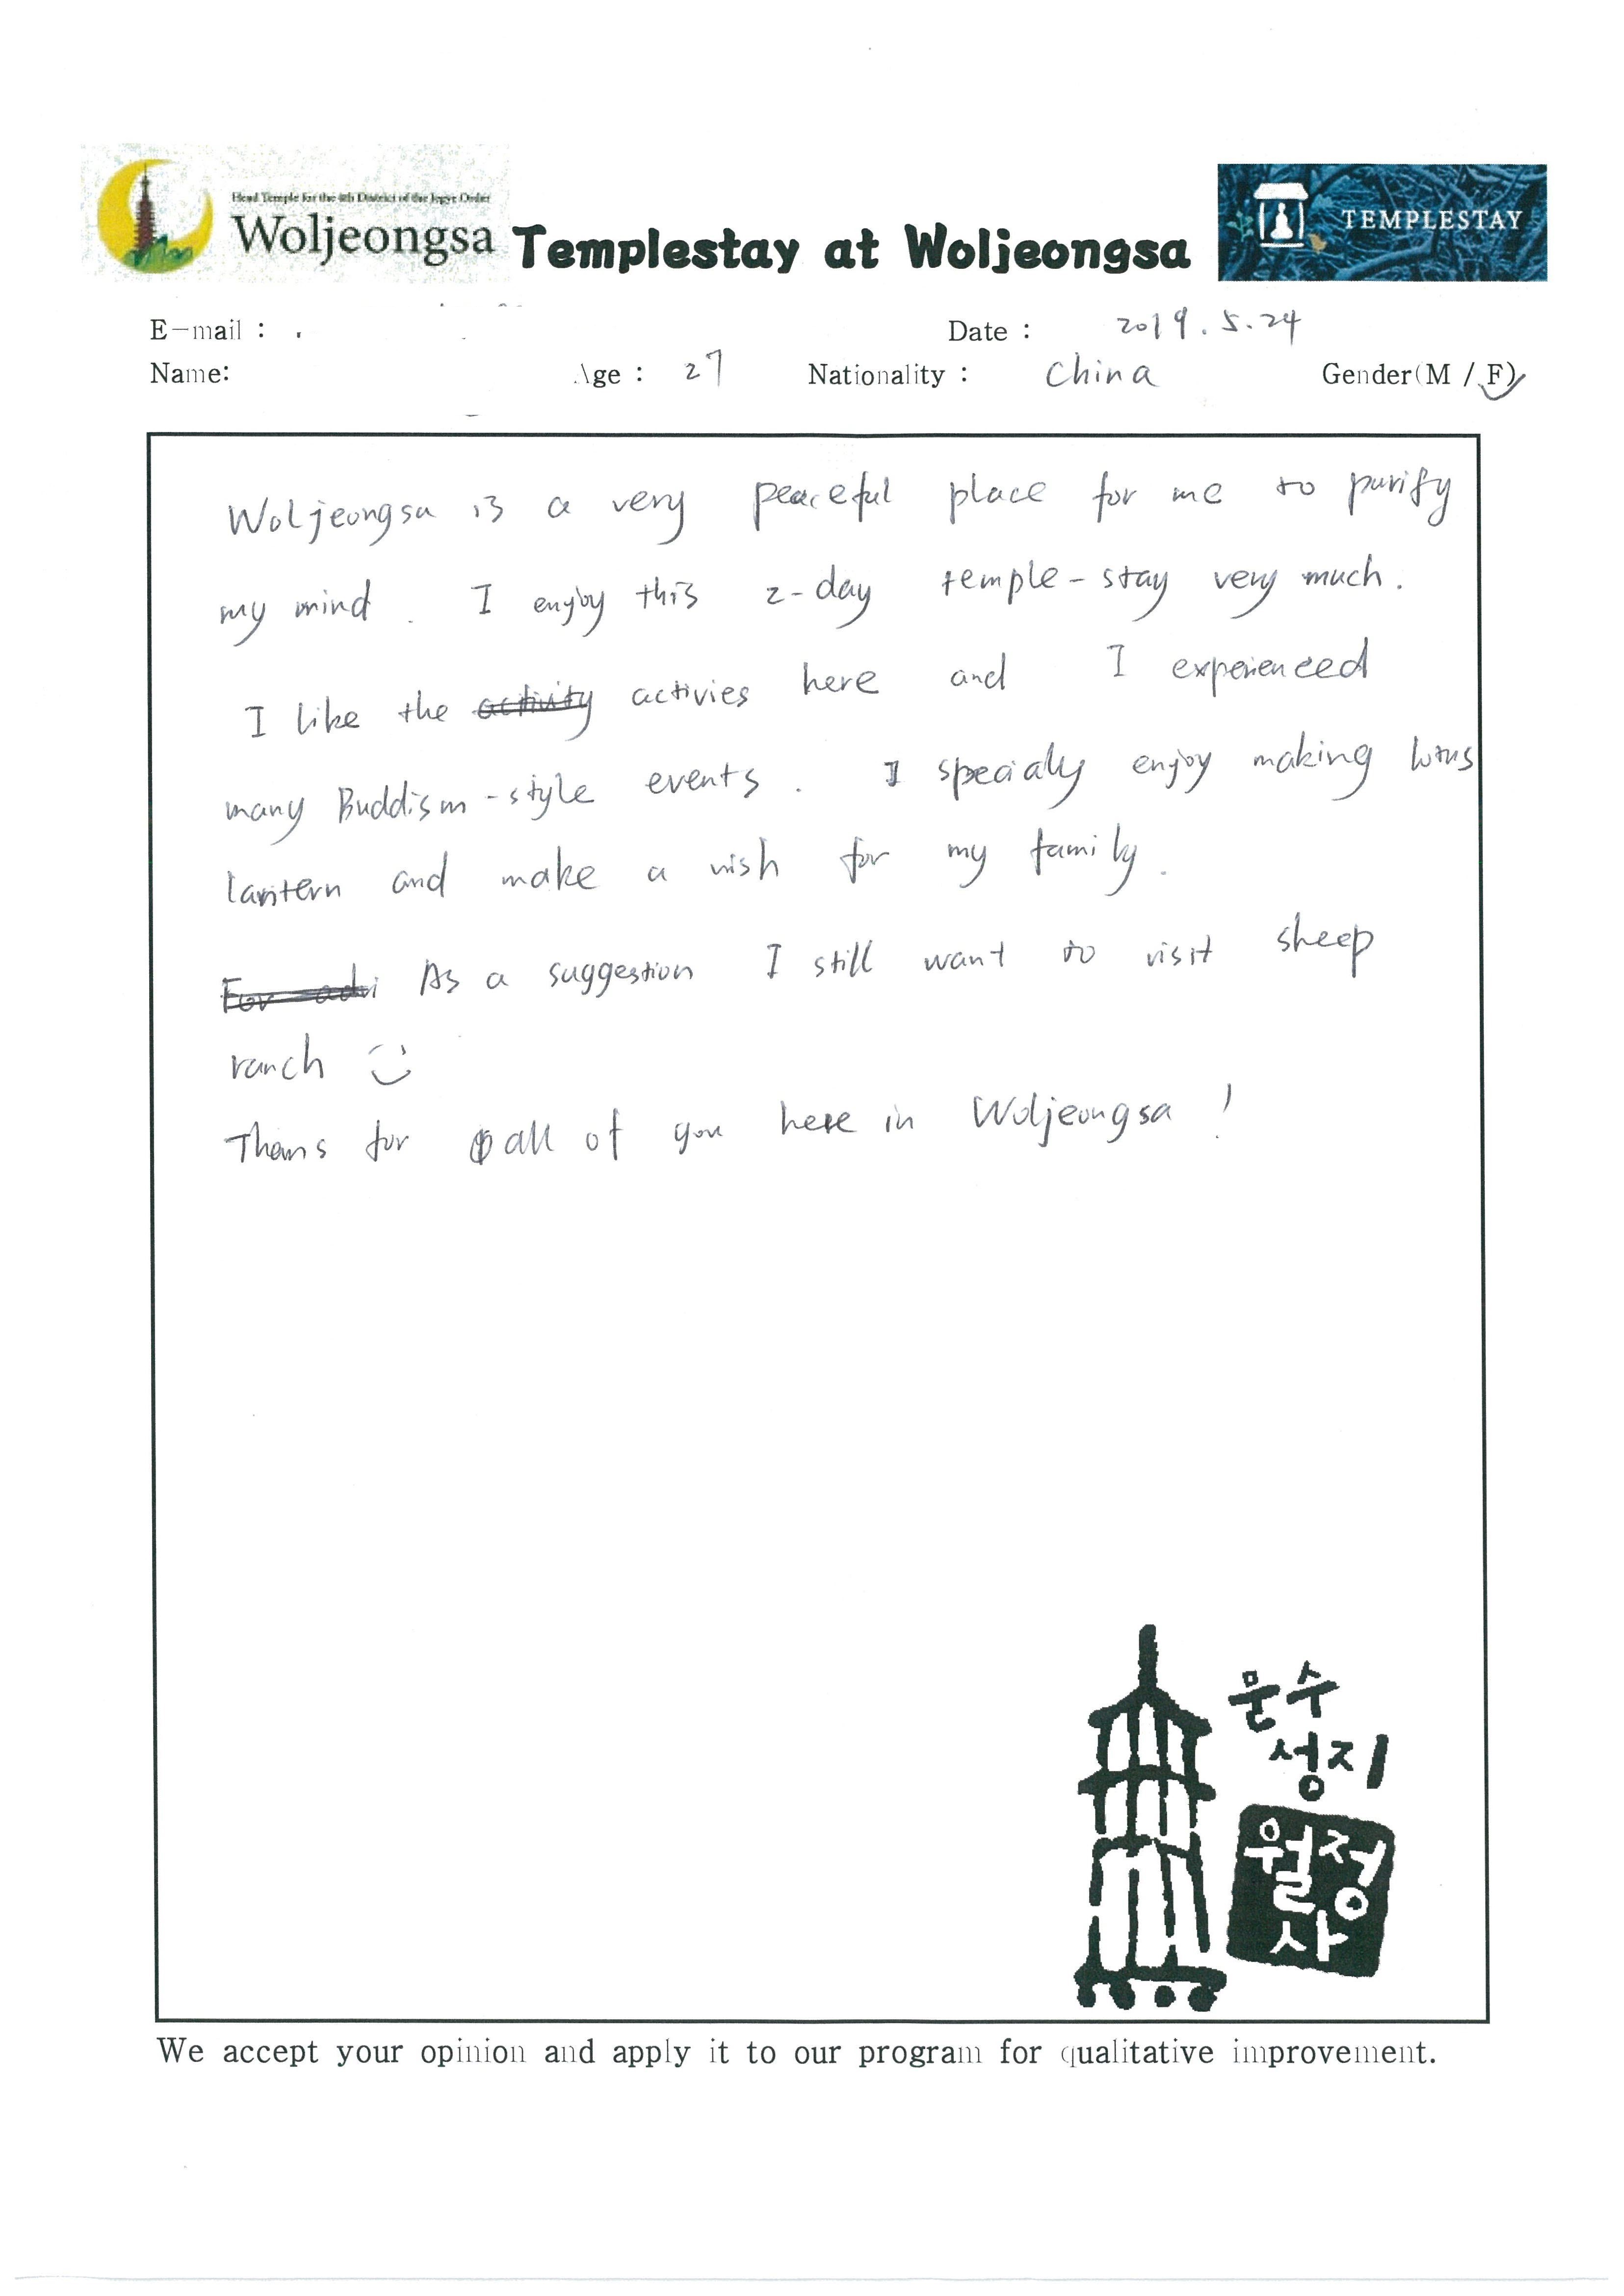 Head Temple for the 4th District of the Jogye Order
Woljeongsa
Templestay at Woljeongsa
TEMPLESTAY
E-mail :
Date : 2019.5.24
Name: Age : 27 Nationality : China Gender(M / F)
Woljeongsa is a very peaceful place for me to purify
my mind. I enjoy this 2-day temple-stay very much.
I like the activity activies here and I experienced
many Buddism-style events. I specialy enjoy making lotus
lantern and make a wish for my family.
For advi As a suggestion I still want to visit sheep
ranch
Thans for all of you here in Woljeongsa!
문수
성지
월정
사
We accept your opinion and apply it to our program for qualitative improvement.